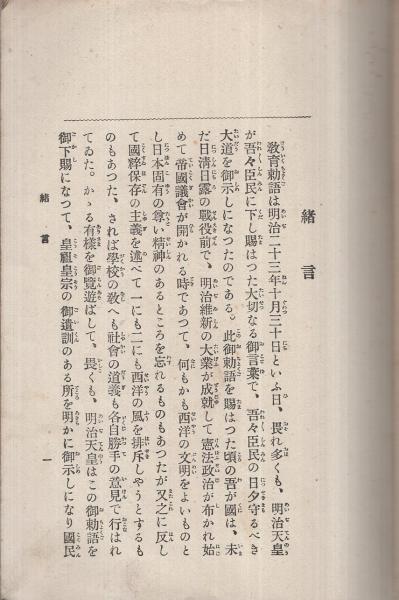 緒言
教育勅語は明治二十三年十月三十日といふ日、畏れ多くも、明治天皇
が吾々臣民に下し賜はつた大切なる御言葉で、吾々臣民の日夕守るべき
大道を御示しになつたのである。此御勅語を賜はつた頃の吾が國は、未
だ日清日露の戰役前で、明治維新の大業が成就して憲法政治が布かれ始
めて帝國議會が開かれる時であつて、何もかも西洋の文明をよいものと
し日本固有の尊い精神のあるところを忘れるものもあつたが又之に反し
て國粹保存の主義を述べて一にも二にも西洋の風を排斥しやうとするも
のもあつた、されば學校の敎へも社會の道義も各自勝手の意見で行はれ
てゐた。かゝる有樣を御覽遊ばして、畏くも、明治天皇はこの御勅語を
御下賜になつて、皇祖皇宗の御遺訓のある所を明かに御示しになり國民
緒言
一